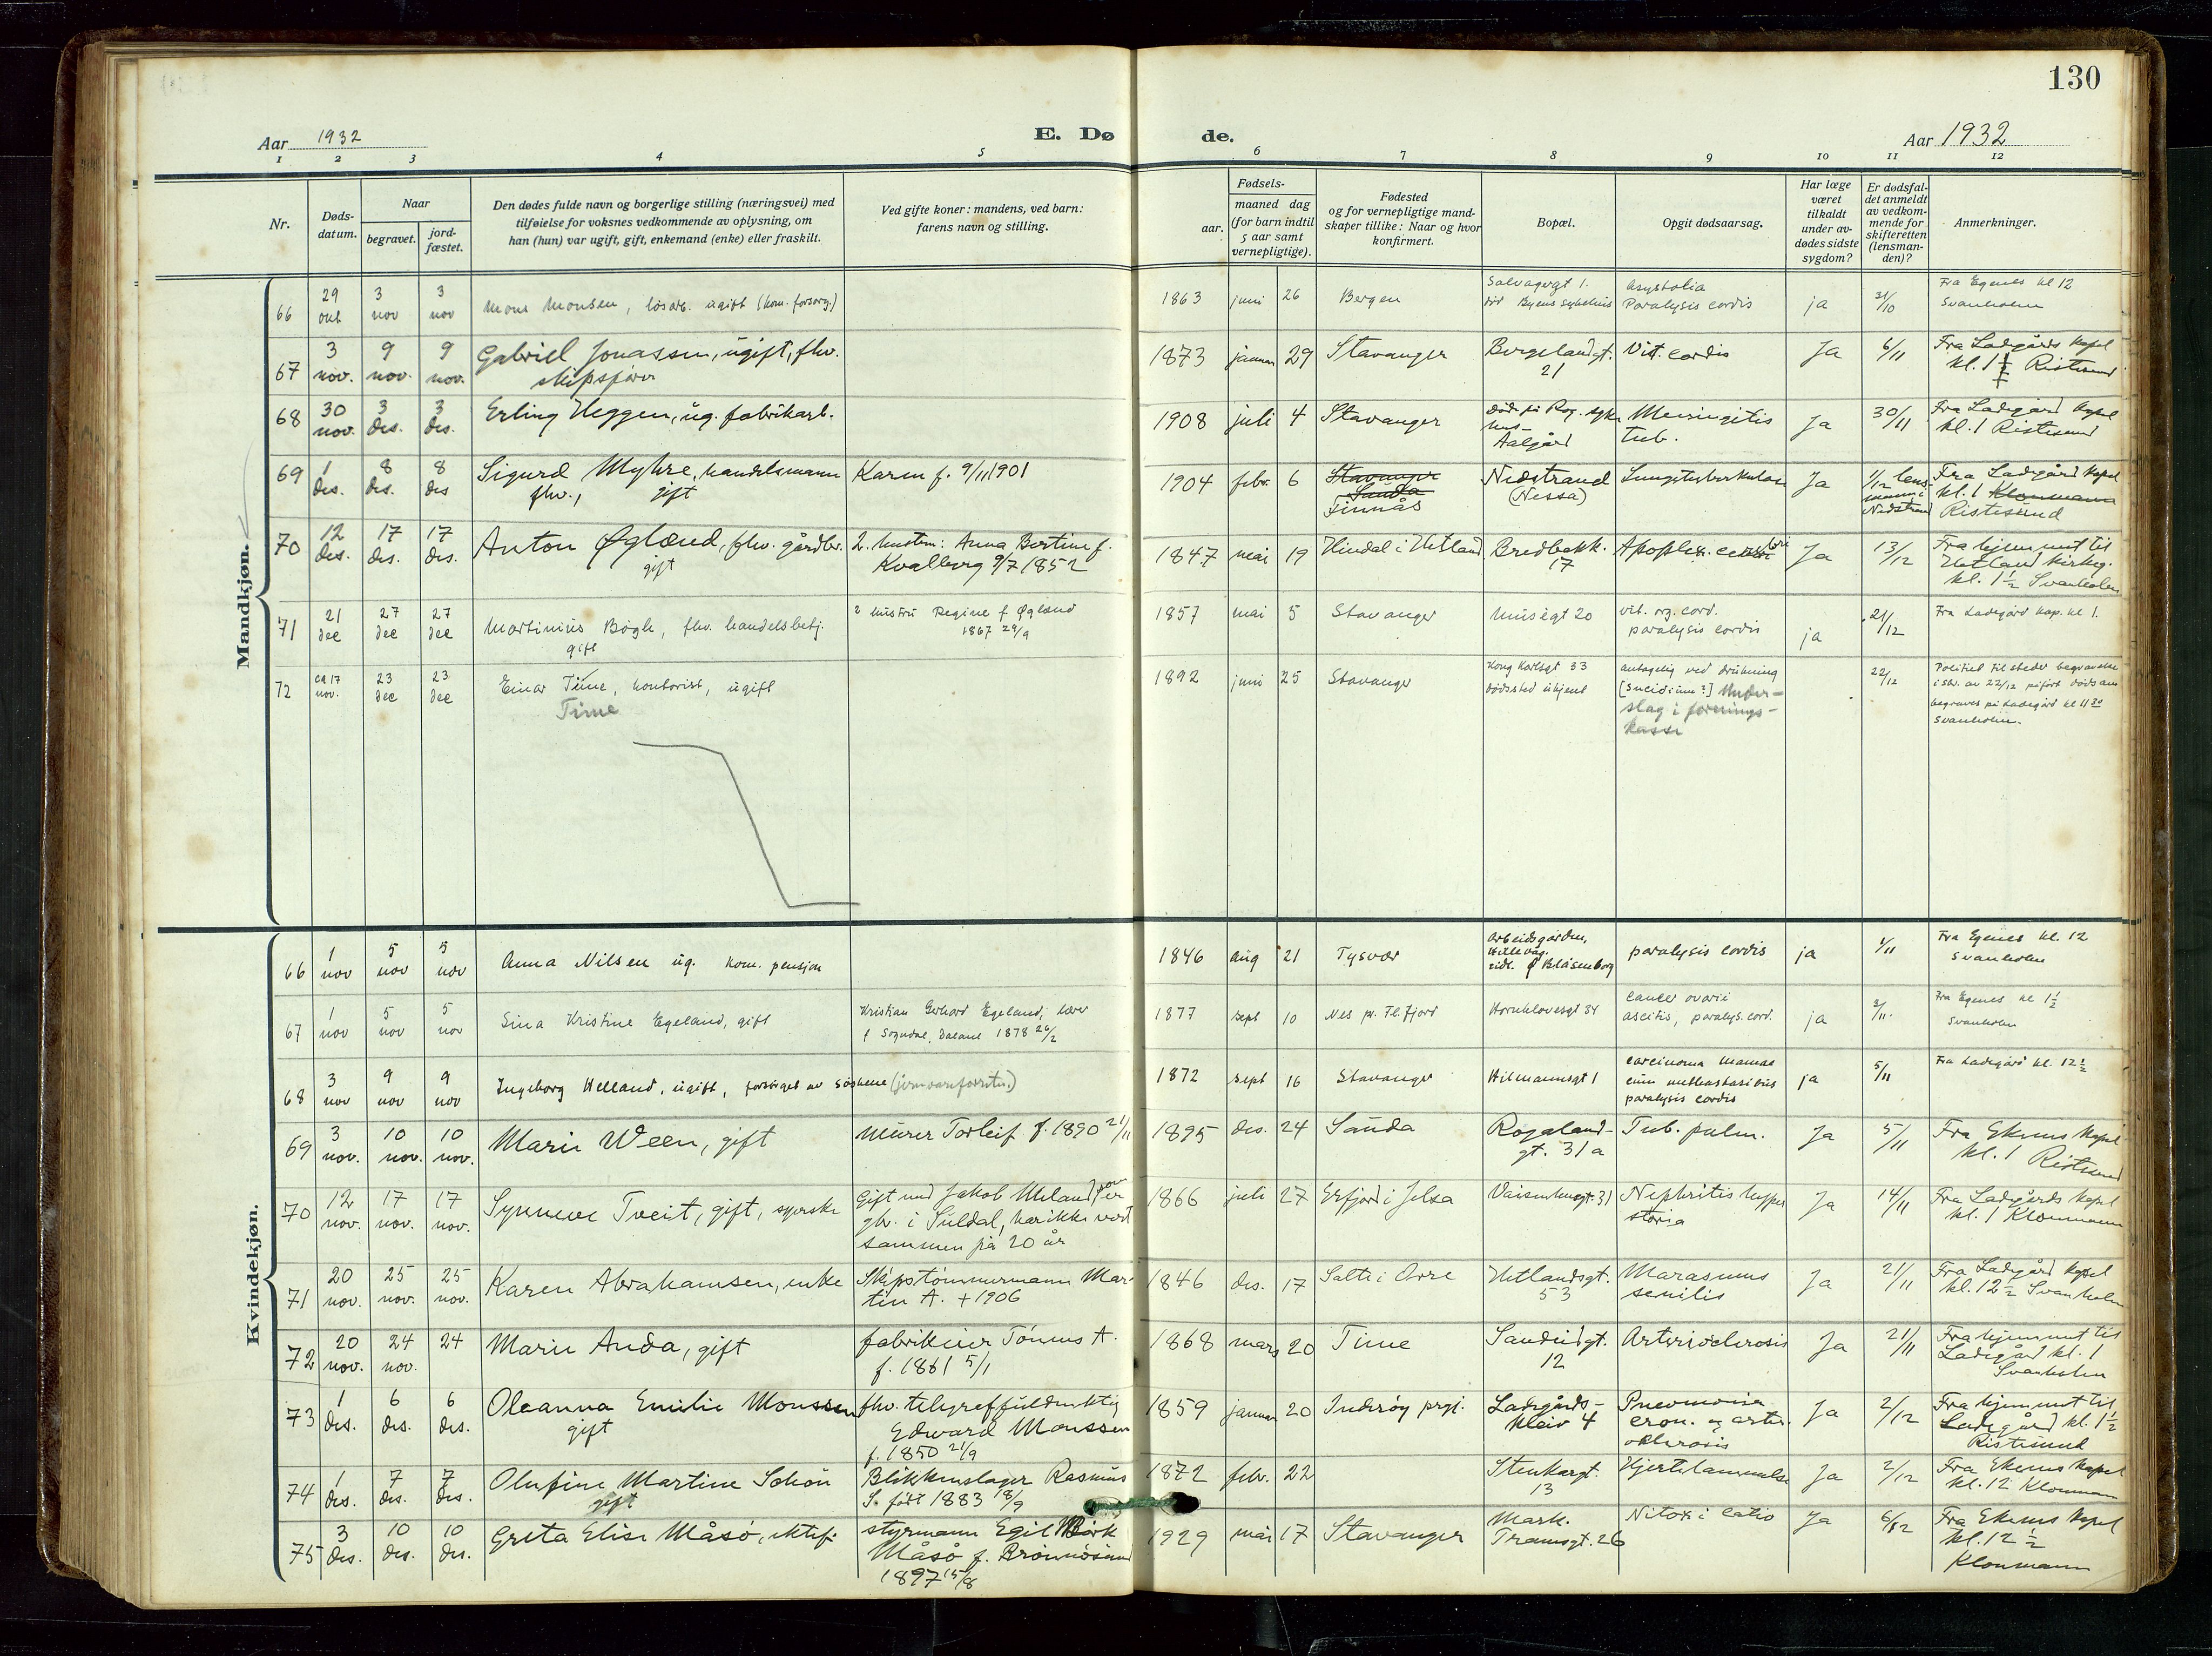 130
Aar 1932
E. Dø
de.
Aar 1932
1 2 3 4 5 6 7 8 9 10 11 12
Nr.
Døds-
datum.
Naar
begravet.
jord-
fæstet.
Den dødes fulde navn og borgerlige stilling (næringsvei) med
tilføielse for voksnes vedkommende av oplysning, om
han (hun) var ugift, gift, enkemand (enke) eller fraskilt.
Ved gifte koner: mandens, ved barn:
farens navn og stilling.
aar.
Fødsels-
maaned dag
(for barn indtil
5 aar samt
vernepligtige).
Fødested
og for vernepligtige mand-
skaper tillike: Naar og hvor
konfirmert.
Bopæl.
Opgit dødsaarsag.
Har læge
været
tilkaldt
under av-
dødes sidste
sygdom?
Er dødsfal-
det anmeldt
av vedkom-
mende for
skifteretten
(lensman-
den)?
Anmerkninger.
Mandkjøn.
66 29 okt 3 nov 3 nov Mons Monsen, løsarb. ugift (kom. forsorg.) 1863 juni 26 Bergen Solvagergt 1. død Byens sykehus Asystolia Paralysis cordis ja 31/10 Fra Egenes kl 12 Svanholm
67 3 nov. 9 nov. 9 nov. Gabriel Jonassen, ugift, fhv. skipsfører 1873 januar 29 Stavanger Bergelandgt. 21 Vit. cordis Ja 6/11 Fra Ladegårds kapel kl. 1 Ristesund
68 30 nov. 3 des. 3 des. Erling Heggen, ug. fabrikarb. 1908 juli 4 Stavanger Død på Rog. sykehus Aalgård Meningitis tub. Ja 30/11 Fra Ladegård kapel kl. 1 Ristesund
69 1 des. 8 des. 8 des Sigurd Myhre, handelsmann fhv., gift Karen f. 9/11 1901 1904 febr. 6 Stavanger Sauda Finnås Nedstrand (Nessa) Lungetuberkulose Ja 1/12 lensmann i Nedstrand Fra Ladegård kapel kl. 1 Klonmann Ristesund
70 12 des. 17 des. 17 des. Anton Øglænd, fhv. gårdbr. gift 2. hustru: Anna Bertine f. Kvalberg 9/7 1852 1847 mai 19 Hindal i Hetland Bredbakk. 17 Apoplex. cerebri Ja 13/12 Fra hjemmet til Hetland kirkeg. kl. 1½ Svanholm
71 21 dec 27 dec 27 dec Martinius Bøgh, fhv. handelsbetj. gift 2 hustru Regine f Øglænd 1867 29/9 1857 mai 5 Stavanger Musegt 20 vit. org. cord. paralysis cordis ja 21/12 Fra Ladegård kap. kl 1.
72 ca 17 nov. 23 dec 23 dec Einar Time, kontorist, ugift Time 1892 juni 25 Stavanger Kong Karlsgt 33 dødssted ukjent antagelig ved drukning [suicidium?] Underslag i forenings-kasse 22/12 Politiet tilsteder begravelse i skr. av 22/12 påført dødsanm begraves på Ladegård kl 11 30 Svanholm.
Kvindekjøn.
66 1 nov 5 nov 5 nov Anna Nilsen ug. kom. pensjon 1846 aug 21 Tysvær Arbeidsgården, Hillevåg. Blåsenborg paralysis cordis ja 1/11 Fra Egenes kl. 12 Svanholm
67 1 nov 5 nov 5 nov Sina Kristine Egeland, gift Kristian Gerhard Egeland, lærer f Sogndal, Dalane 1878 26/2 1877 sept 10 Nes pr. Fl.fjord Hornklovesgt 34 cancer ovarii ascitis, paralys. cord. ja 2/11. Fra Egenes kl 1½ Svanholm
68 3 nov 9 nov 9 nov Ingeborg Helland, ugift, forsørget av søskene (jernvareforretn.) 1872 sept 16 Stavanger Hilmannsgt 1 carcinoma mamae cum methastasibus paralysis cordis ja 5/11 Fra Ladegård kl. 12½
69 3 nov. 10 nov. 10 nov. Marie Ween, gift Murer Torleif f. 1890 21/11 1895 des. 24 Sauda Rogaland-gt. 31a Tub. pulm. Ja 5/11 Fra Ekenes kapel kl. 1 Ristesund
70 12 nov. 17 nov. 17 nov. Synneve Tveit, gift, syerske Gift med Jakob Meland som er gbr. i Suldal, har ikke vært sammen på 20 år 1866 juli 27 Erfjord i Jelsa Vaisenhusgt. 31 Nephritis Ja 14/11 Fra Ladegårds kapel kl. 1 Klonmann
71 20 nov. 25 nov. 25 nov. Karen Abrahamsen, enke Skipstømmermann Mar-tin A. + 1906 1846 des. 17 Salte i Orre Hetlandsgt. 53 Marasmus senilis Ja 21/11 Fra Ladegård kapel kl. 12½ Svanholm
72 20 nov. 24 nov. 24 Marie Anda, gift fabrikeier Tønnes A. f. 1861 5/1 1868 mars 20 Time Sandeidgt. 12 Arteriosclerosis Ja 21/11 Fra hjemmet til Ladegård kl. 1 Svanholm
73 1 des. 6 des. 6 des. Oleanna Emilie Monssen gift fhv. telegraffuldmektig Edward Monssen f. 1850 21/9 1859 januar 20 Inderøy prgj. Ladegårds-kleiv 4 Pneumonia cron. og arter. osclerosis Ja 2/12 Fra hjemmet til Ladegård kl. 1½ Ristesund
74 1 des. 7 des. 7 des. Olufine Martine Schøn gift Blikkenslager Rasmus S. født 1883 18/9 1872 febr. 22 Stenkargt. 13 Hjertelammelse Ja 2/12 Fra Ekenes kapel kl. 12 Klonmann
75 3 des. 10 des. 10 des. Greta Elise Måsø, ektef. styrmann Egil Mørk Måsø f. Brønnøsund 1897 15/8 1929 mai 17 Stavanger Mark. Tramsgt. 26 Ja 6/12 Fra Ekenes kapel kl. 12½ Klonmann